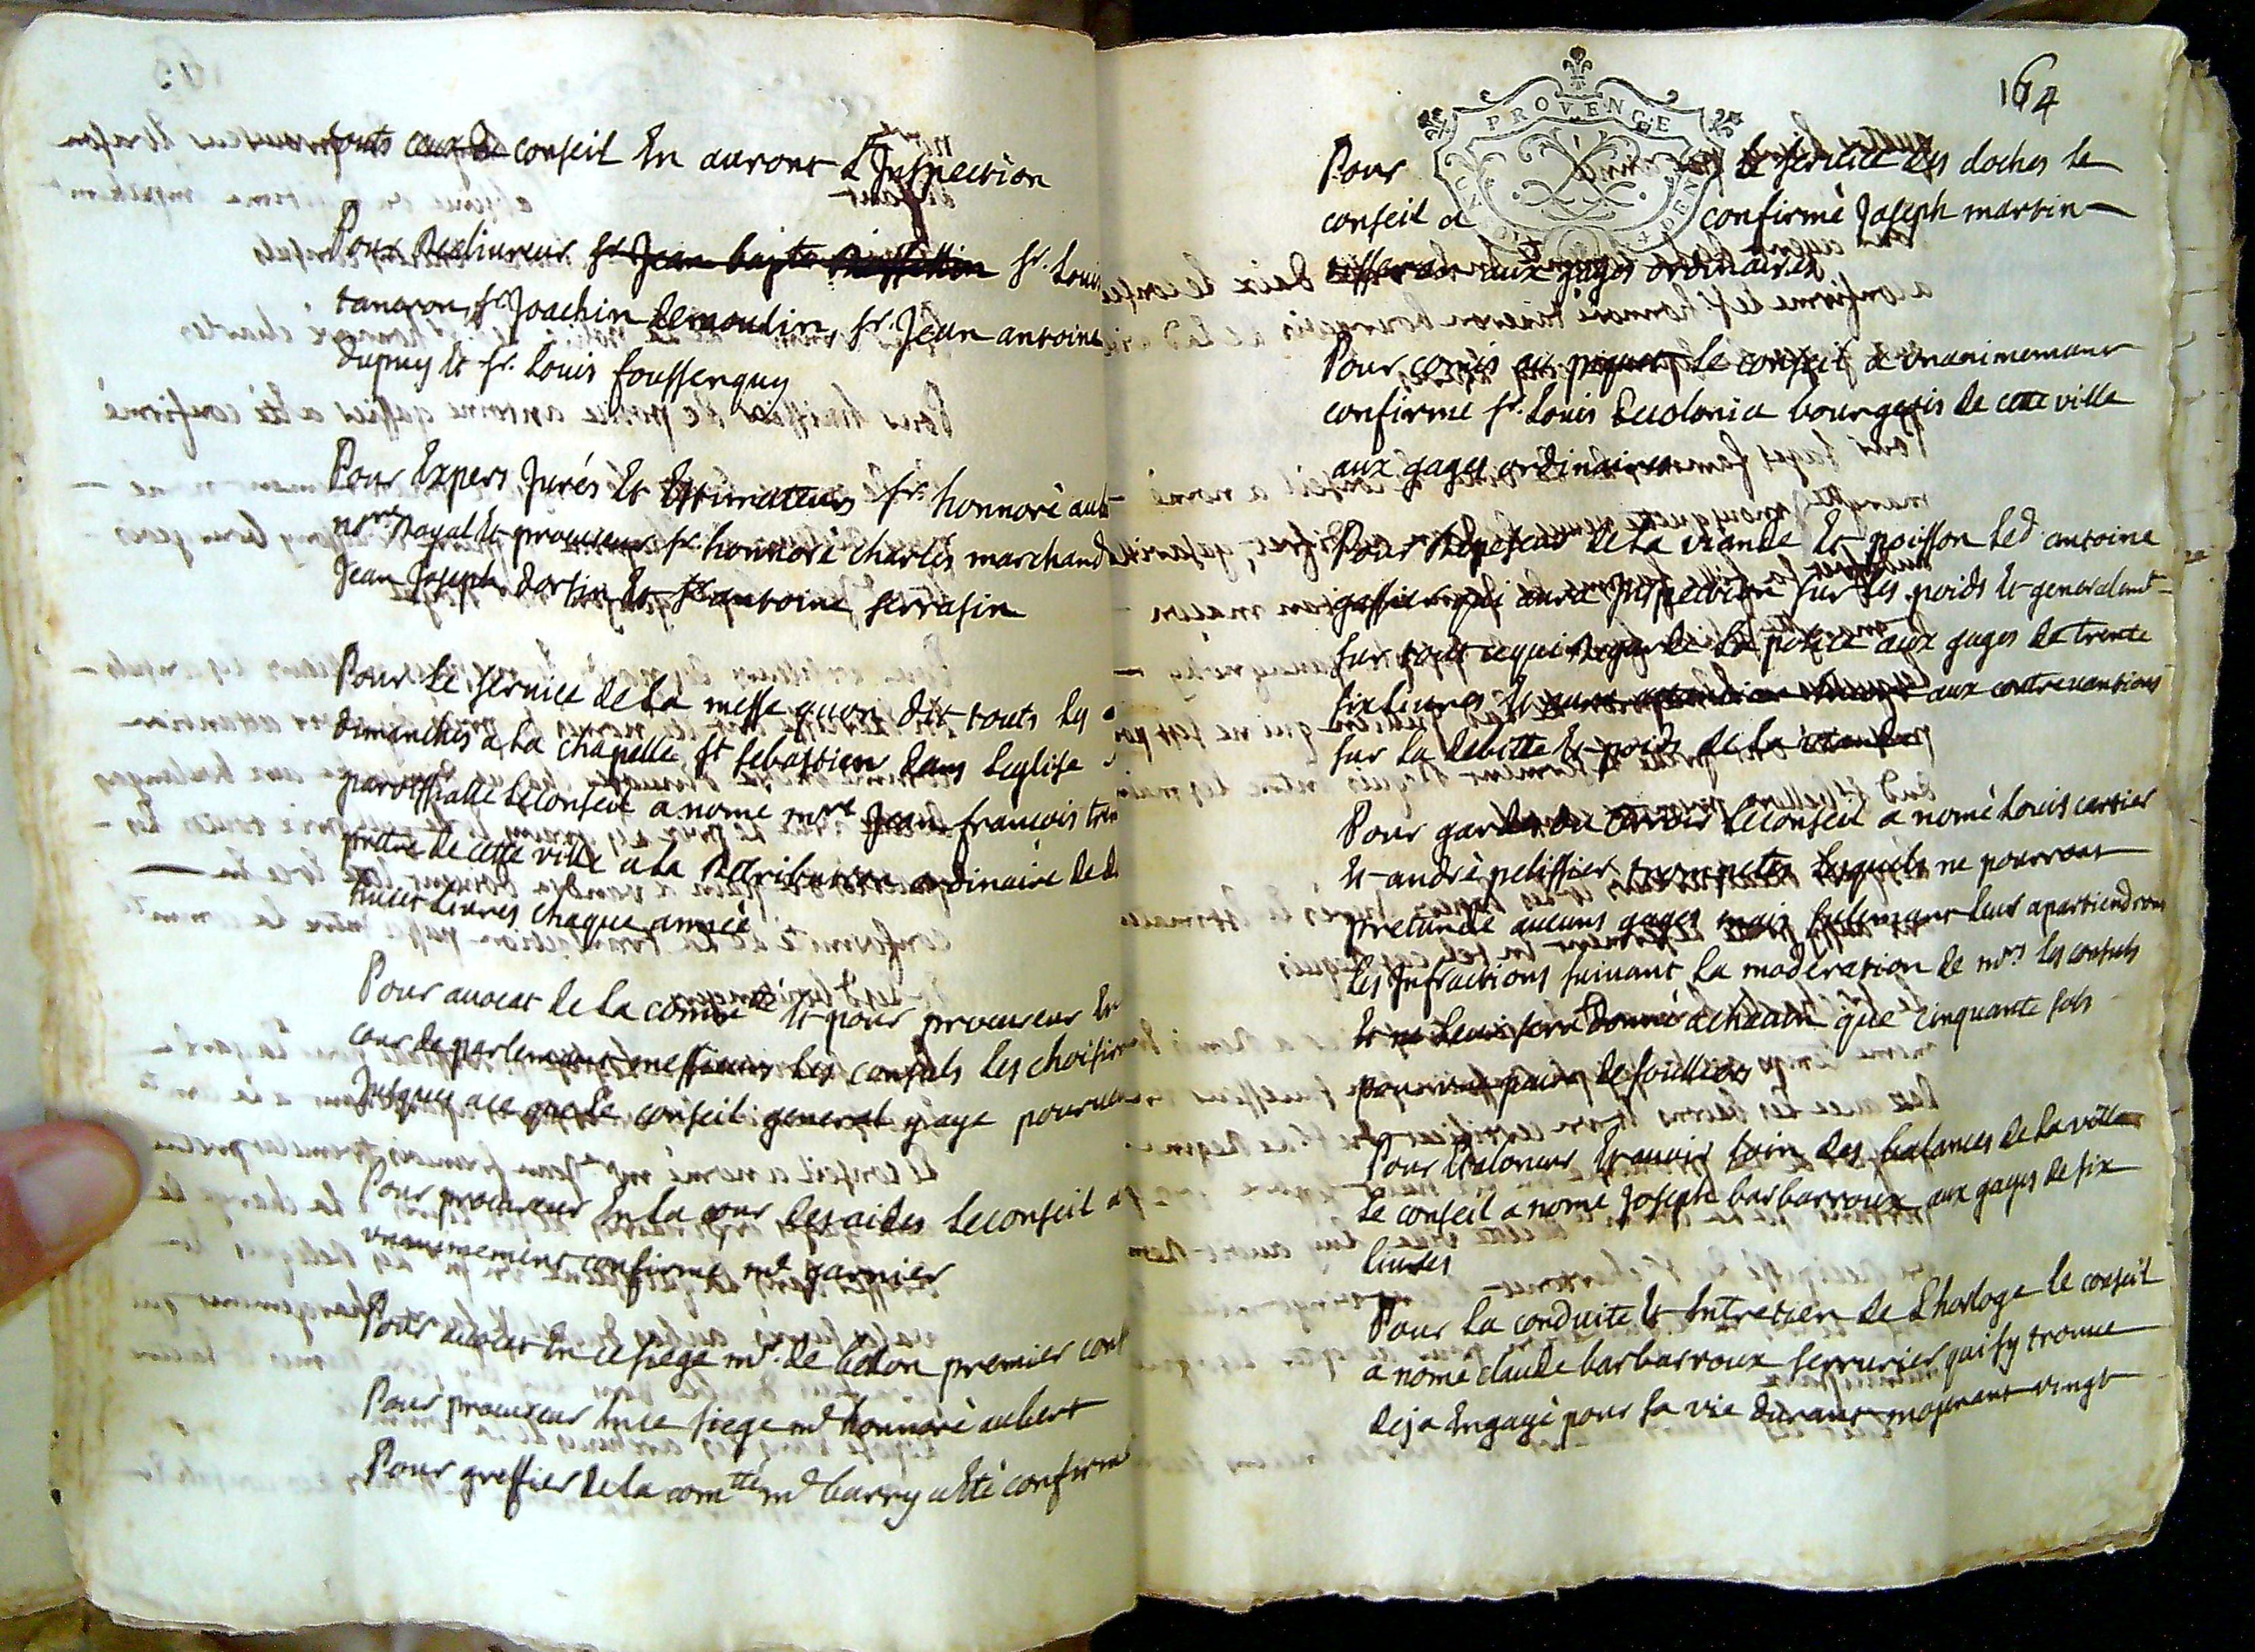 touts ceux du conseil En auront L'Inspection
Pour Recliureur sr. Jean bapte sr. Louis
tanaron, sr. Joachin demoudin, sr. Jean antoine
dupuy Et sr. Louis foussenquy
Pour Expers Jurés Et Estimateurs sr. honnoré aub
nore Royal Et procureur sr honnoré charles marchand
Jean Joseph dorsin Et sr antoine serrasin
Pour Le service de La messe quon dit touts Les
dimanches a La chapelle st sebastien dans Leglise
paroissialle Le conseil a nomé mre Jean francois
prettre de cette ville a La Retribution ordinaire de
huict Livres chaque année
Pour avocat de La comtté Et pour procureur En
cour de parlemant messieurs Les consuls Les choisir
Jusques a ce que Le conseil general y aye pourveu
Pour procureur En La cour des aides Le conseil a
unanimement confirmé me garnier
Pour avocat En ce siege mr. de bellon premier cons
Pour procureur En ce siege me honnoré aubert
Pour greffier de La comtté me barry a Eté confirmé
164
PROVENCE
Pour Le service des cloches Le
conseil a confirmé Joseph martin
tisseran aux gages ordinaires
Pour comis au piquet Le conseil a unanimemant
confirmé sr. Louis decolonia bourgeois de cette ville
aux gages ordinaires
Pour Repeseur de La viande Et poisson Led antoine
gassier qui aura Inspection sur Les poids Et generalemt
sur tout ce qui Regarde La police aux gages de trente
six Livres Et aux contrevantions
sur La debitte Et poids de La viande
Pour gardes du terroir Le conseil a nomé Louis cartier
Et andré pelissier trompetes Lesquels ne pourront
pretandre aucuns gages mais sulemant Leur apartiendront
Les Infractions suivant La moderation de mrs Les consuls
Et ne Leur sera donné a chacun que cinquante sols
pour une paire de soulliers
Pour Etaloneur Et avoir soin des balances de La ville
Le conseil a nomé Joseph barbarroux aux gages de six
Livres
Pour La conduite Et Entretien de Lhorloge Le conseil
a nomé claude barbarroux serrurier qui sy trouve
deja Engagé pour sa vie durant mojenant vingt